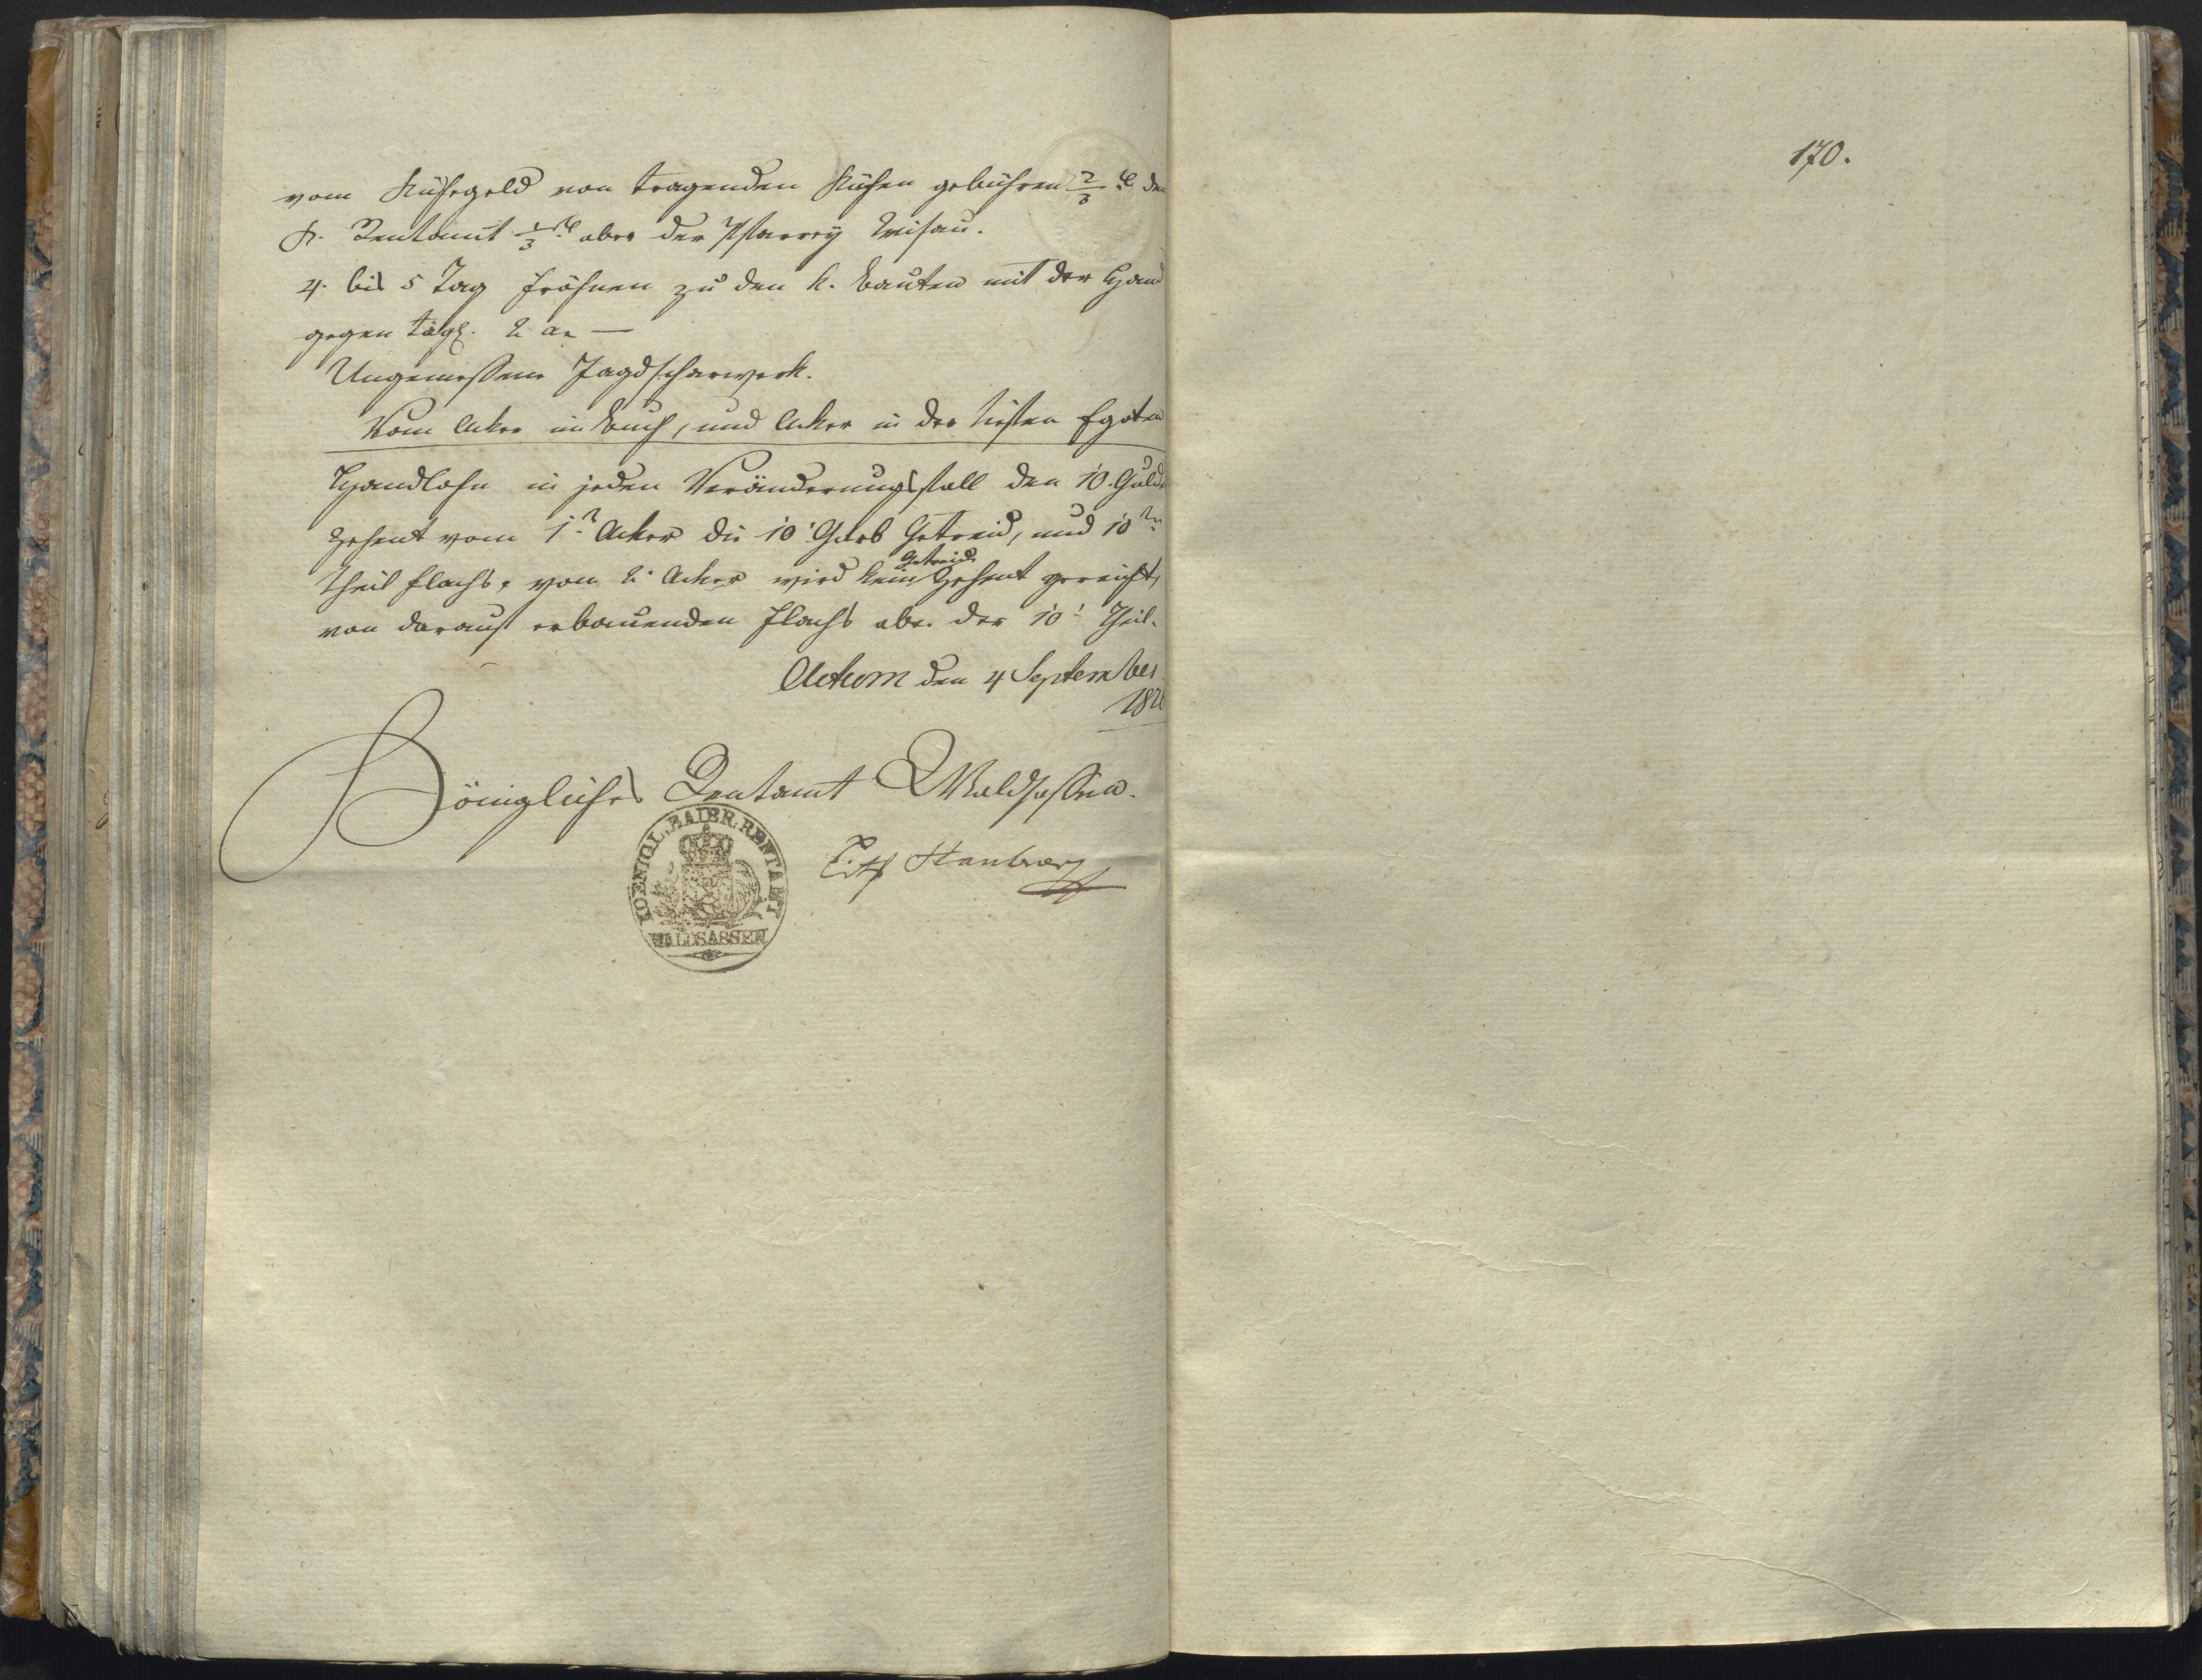 vom Kühegeld von tragenden Kühen gebühren 2/3 tl dem
K. Rentamt 1/3 tl aber der Pfarrey Wisau.
4. bis 5 Tag Fröhnen zu den k. Bauten mit der Hand
gegen tägl. 2 ar —
Ungemessene Jagdscharwerk.
Vom Acker im Buch, und Acker in der tiefen Egeten
Handlohn in jeden Veränderungsfall den 10. Gulden
Zehent vom 1n Acker die 10t Garb Getreid, und 10tn
Getreid
Theil Flachs, vom 2t Acker wird kein Zehent gereicht,
von darauf erbauenden Flachs aber der 10t Theil.
Actum den 4 September
182
Königliches Rentamt Waldsassen.
KOENIGL. BAIER. RENTAMT
WALDSASSEN
170.